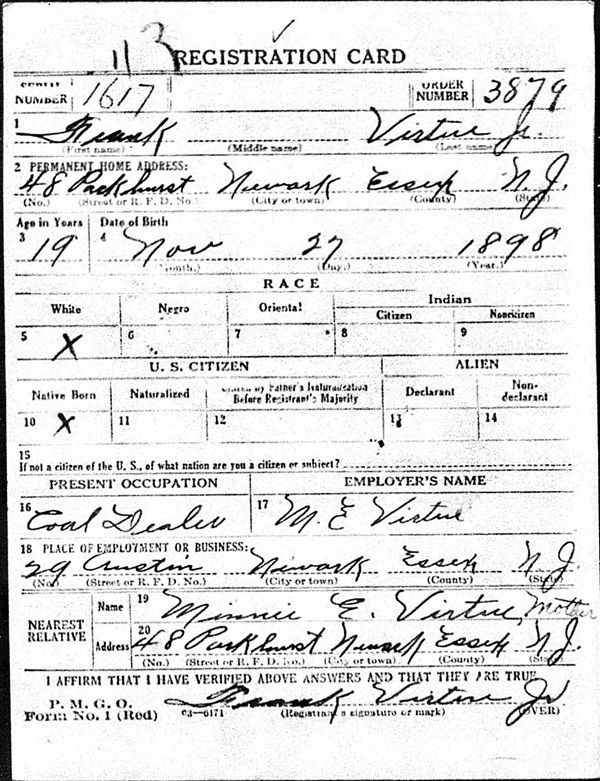 113
REGISTRATION CARD
SERIAL NUMBER 1617 ORDER NUMBER 3879
1 Frank Virtue Jr.
(First name) (Middle name) (Last name)
2 PERMANENT HOME ADDRESS:
48 Parkhurst Newark Essex N.J.
(No.) (Street or R. F. D. No.) (City or town) (County) (State)
Age in Years Date of Birth
3 19 4 Nov 27 1898
(Month.) (Day.) (Year.)
RACE
White Negro Oriental Indian
Citizen Noncitizen
5 X 6 7 8 9
U. S. CITIZEN ALIEN
Native Born Naturalized Citizen by Father's Naturalization Before Registrant's Majority Declarant Non-declarant
10 X 11 12 13 14
15
If not a citizen of the U. S., of what nation are you a citizen or subject?
PRESENT OCCUPATION EMPLOYER'S NAME
16 Coal Dealer 17 M. E Virtue
18 PLACE OF EMPLOYMENT OR BUSINESS:
29 Austin Newark Essex N.J.
(No.) (Street or R. F. D. No.) (City or town) (County) (State)
NEAREST RELATIVE Name 19 Minnie E. Virtue, Mother
Address 20 48 Parkhurst Newark Essex N.J.
(No.) (Street or R. F. D. No.) (City or town) (County) (State)
I AFFIRM THAT I HAVE VERIFIED ABOVE ANSWERS AND THAT THEY ARE TRUE
P. M. G. O.
Form No. 1 (Red) 03—6171 Frank Virtue Jr
(Registrant's signature or mark) (OVER)